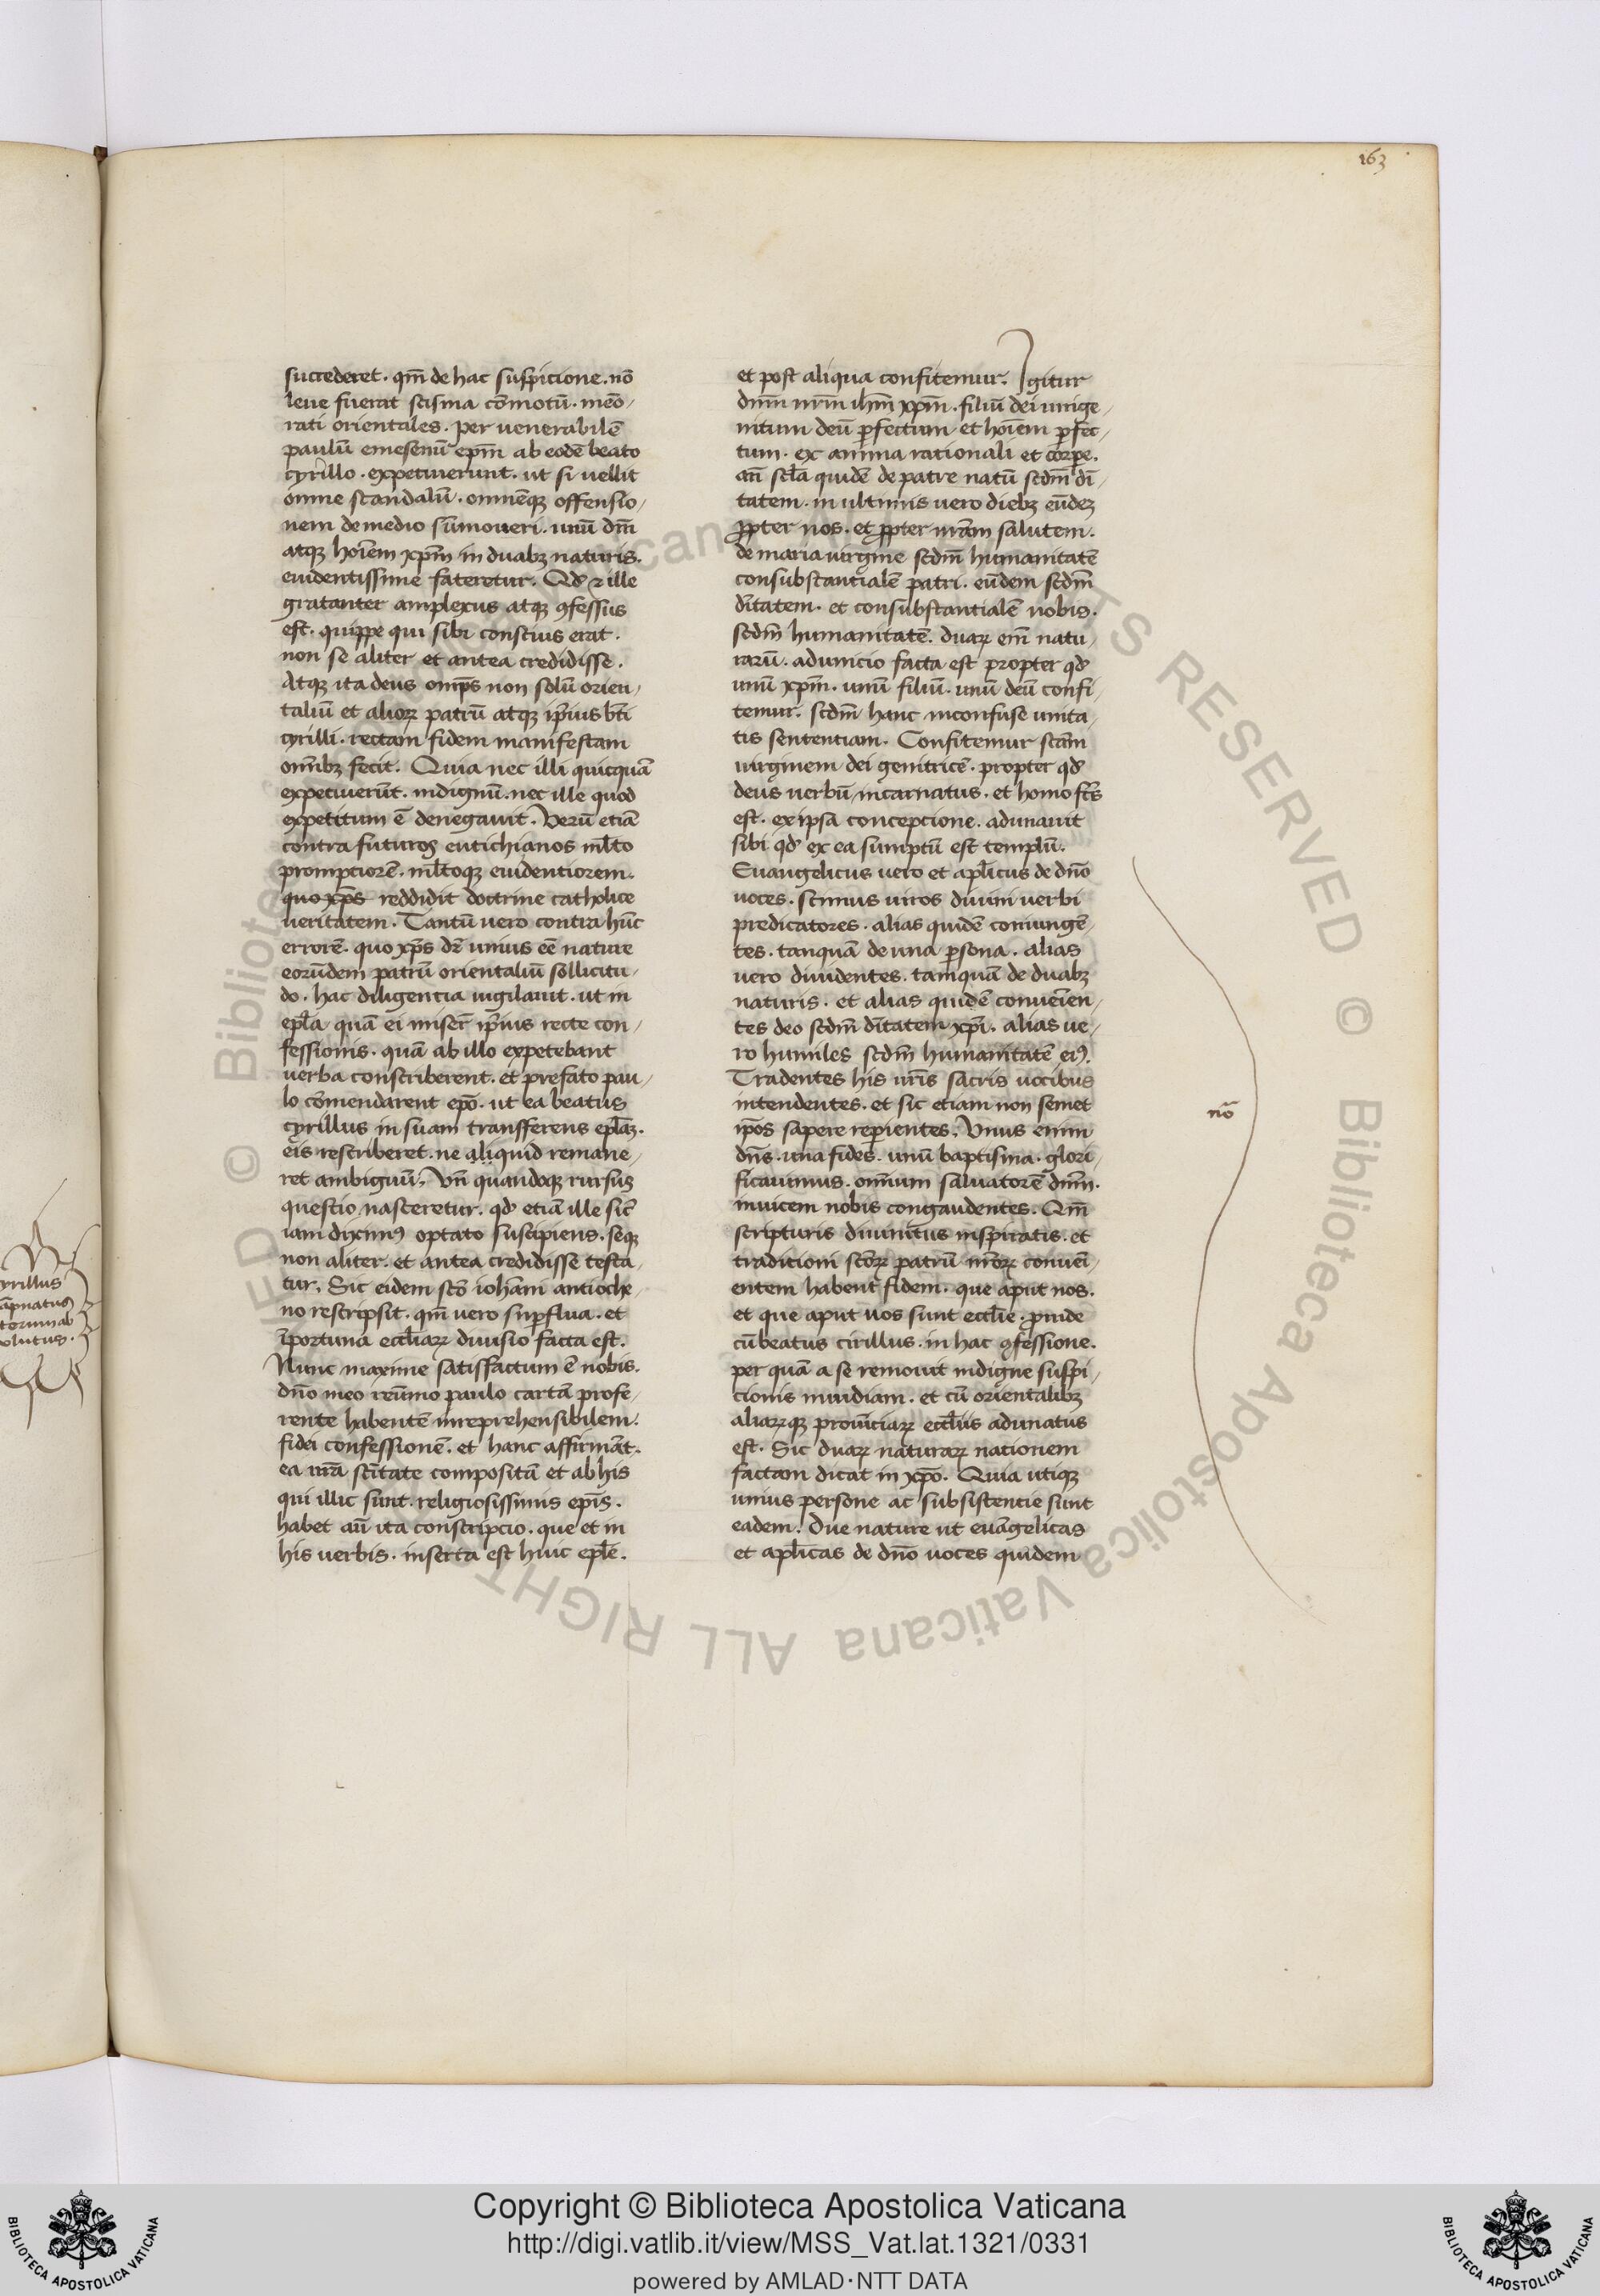 163
succederet. qm̄ de hac suspicione. nō
leue fuerat scisma cōmotū. meō-
rati orientales. per uenerabilē
paulū emesenū ep̄m ab eodē beato
cyrillo. expetiuerunt. ut si uellit
omne scandalū. omnēqꝫ offensio-
nem de medio sūmoueri. unū dm̄
atqꝫ hoīem xp̄m in duabꝫ naturis.
euidentissime fateretur. Qđ ⁊ ille
gratanter amplexus atqꝫ ꝯfessus
est. quippe qui sibi conscius erat.
non se aliter et antea credidisse.
Atqꝫ ita deus omp̄s non solū orien-
taliū et alioꝝ patrū atqꝫ ip̄ius bt̄i
cyrilli. rectam fidem manifestam
omībꝫ fecit. Quia nec illi quicquā
expetiuerūt. indignū. nec ille quod
expetitum ē denegauit. Verū etiā
contra futuros eutichianos ml̄to
prompciorē. ml̄toqꝫ euidentiorem.
quo xp̄s reddidit doctrine catholice
ueritatem. Tantū uero contra hūc
errorē. quo xp̄s dr̄ unius eē nature
eorūdem patrū orientaliū sollicitu-
do. hac diligencia uigilauit. ut in
epl̄a quā ei miser̄ ip̄ius recte con-
fessionis. quā ab illo expetebant
uerba conscriberent. et prefato pau-
lo cōmendarent ep̄o. ut ea beatus
cyrillus in suam transfferens epl̄aꝫ.
eis rescriberet. ne aliquid remane-
ret ambiguū. Vn̄ quandoqꝫ rursus
questio nasceretur. qđ etiā ille sic̄
iam diximꝰ optato suscipiens. seqꝫ
non aliter. et antea credidisse testa-
tur. Sic eidem sc̄o ioh̄ani antioche-
no rescripsit. qm̄ uero suꝑflua. et
īportuna eccl̄iaꝝ diuisio facta est.
Nunc maxime satisfactum ē nobis.
dn̄o meo reūmo paulo cartā profe-
rente habentē inreprehensibilem.
fidei confessionē. et hanc affirmāt.
ea ur̄a sc̄itate compositā et ab his
qui illic sunt. religiosissimis ep̄is.
habet aū ita conscripcio. que et in
his uerbis. inserta est huic epl̄e.
et post aliqua confitemur. Igitur
dnm̄ nrm̄ ihm̄ xpm̄. filiū dei unige-
nitum deū ꝑfectum et hoīem ꝑfec-
tum. ex anima rationali et corpe.
an̄ scl̄a quidē de patre natū scdm̄ dī-
tatem. in ultimis uero diebꝫ eūdeꝫ
ꝓpter nos. et ꝓpter nr̄am salutem.
de maria uirgine scdm̄ humanitatē
consubstantialē patri. eūdem scdm̄
dītatem. et consubstantialē nobis.
scdm̄ humanitatē. duaꝝ em̄ natu-
rarū. adunicio facta est propter qđ
unū xpm̄. unū filiū. unū deū confi-
temur. scdm̄ hanc inconfuse unita-
tis sententiam. Confitemur sc̄am
uirginem dei genitricē. propter qđ
deus uerbū incarnatus. et homo fc̄s
est. ex ipsa concepcione. adunauit
sibi qđ ex ea sumptū est templū.
Euangelicus uero et apl̄icus de dn̄o
uoces. scimus uiros diuini uerbi
predicatores. alias quidē coniungē-
tes. tanquā de una ꝑsona. alias
uero diuidentes. tamquā de duabꝫ
naturis. et alias quidē conueīen-
tes deo scdm̄ dītatem xp̄i. alias ue-
ro humiles scdm̄ humanitatē eiꝰ.
Tradentes his ur̄is sacris uocibus
intendentes. et sic etiam non semet
ip̄os sapere reꝑientes. Vnus enim
dn̄s. una fides. unū baptisma. glori-
ficauimus. omnium saluatorē dnm̄.
inuicem nobis congaudentes. Qm̄
scripturis diuinitus inspiratis. et
traditioni sc̄oꝝ patrū nr̄oꝝ conueni-
entem habent fidem. que aput nos.
et que aput uos sunt eccl̄ie. ꝓinde
cū beatus cirillus. in hac ꝯfessione.
per quā a se remouit indigne suspi-
cionis inuidiam. et cū orientalibꝫ
aliaꝝqꝫ prouīciaꝝ eccl̄iis adunatus
est. Sic duaꝝ naturaꝝ nationem
factam dicat in xp̄o. Quia utiqꝫ
unius persone ac subsistencie sunt
eadem. due nature ut euāgelicas
et apl̄icas de dn̄o uoces quidem
nō
yrillus
olutus.
© Biblioteca Apostolica Vaticana ALL RIGHTS RESERVED
Copyright © Biblioteca Apostolica Vaticana
http://digi.vatlib.it/view/MSS_Vat.lat.1321/0331
powered by AMLAD·NTT DATA
BIBLIOTECA APOSTOLICA VATICANA
BIBLIOTECA APOSTOLICA VATICANA